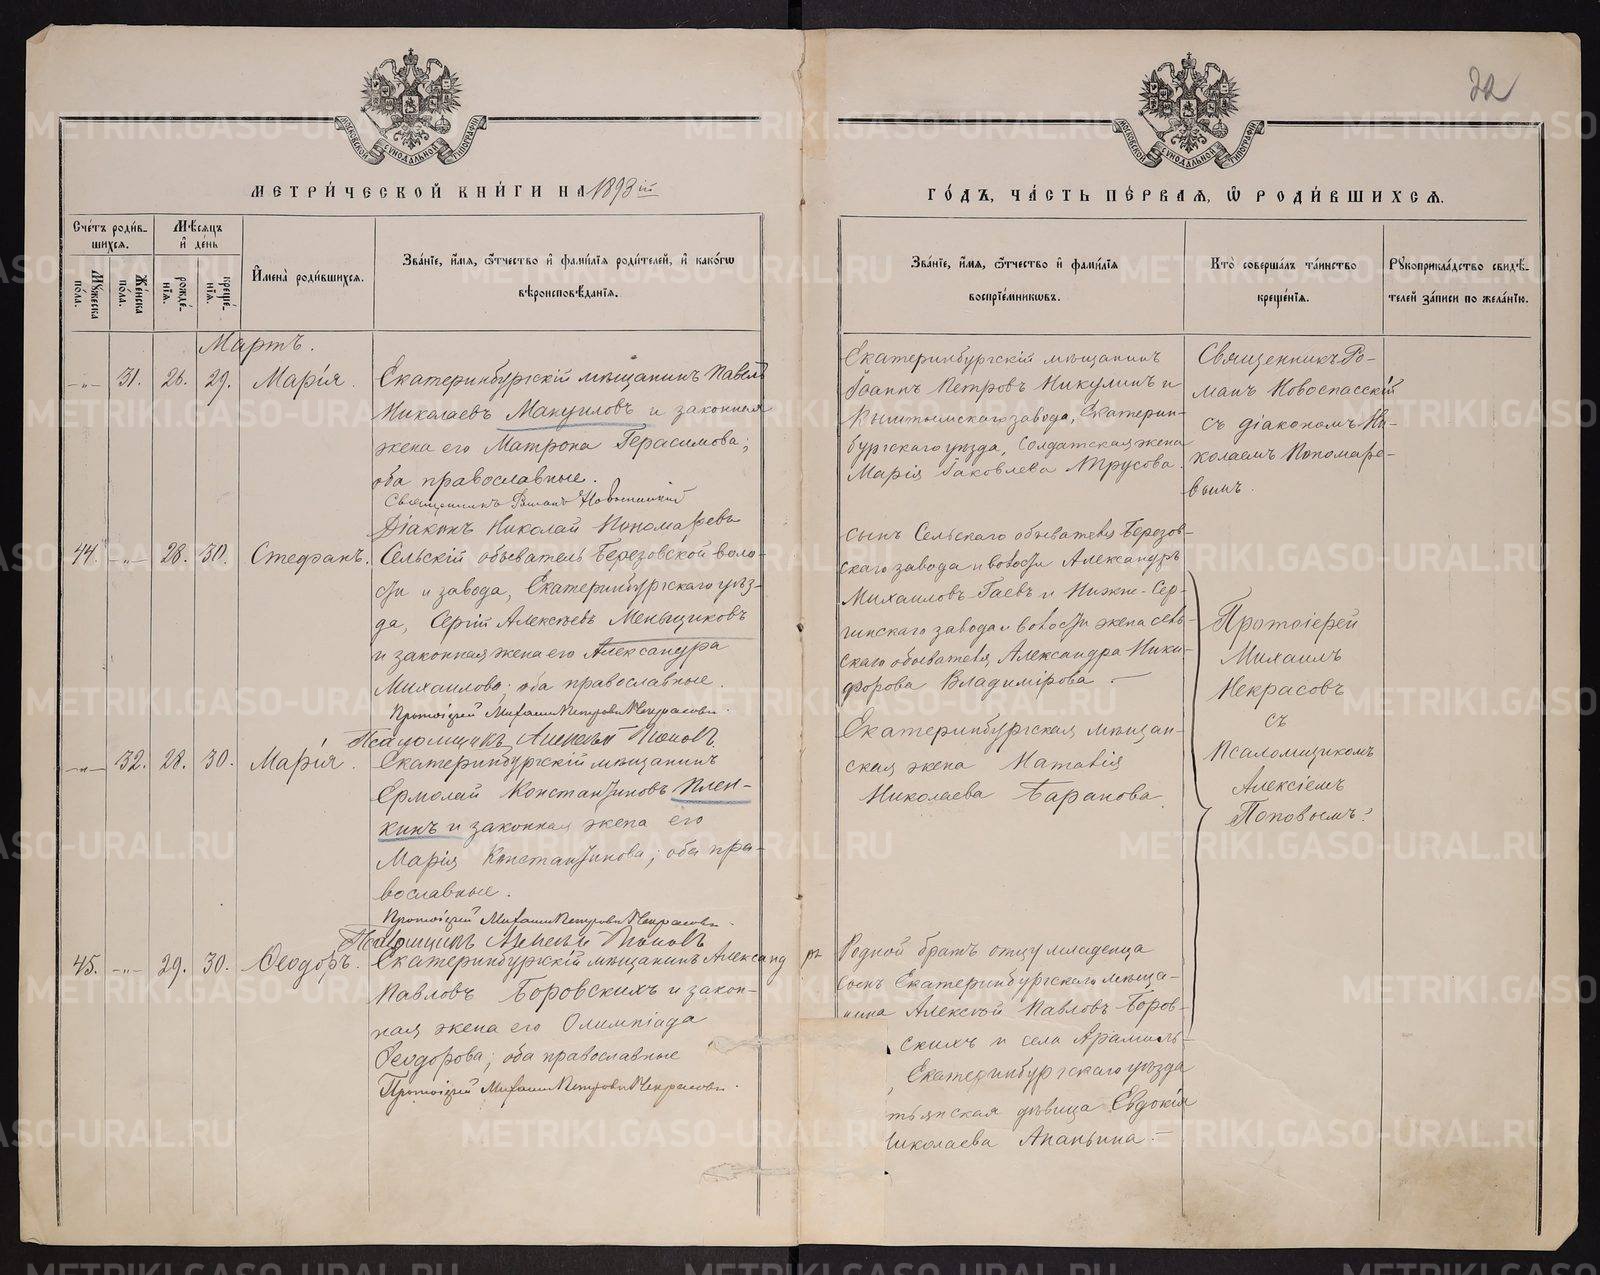 22
МОСКОВСКОЙ СѴНОДАЛЬНОЙ ТИПОГРАФІИ
МОСКОВСКОЙ СѴНОДАЛЬНОЙ ТИПОГРАФІИ
МЕТРИ́ЧЕСКОЙ КНИ́ГИ НА 1893ій
ГО́ДЪ, ЧА́СТЬ ПЕ́РВАЯ, Ѡ РОДИ́ВШИХСЯ.
Сче́тъ роди́в-
шихся.
Мꙋ́жеска по́ла.
Же́нска по́ла.
Мѣ́сяцъ и де́нь
рожде́-нїя.
креще́-нїя.
И҆мена̀ роди́вшихся.
Зва́нїе, и҆́мя, ѻ҆́тчество и҆ фами́лїя роди́телей, и҆ како́гѡ
вѣроисповѣ́данїя.
Зва́нїе, и҆́мя, ѻ҆́тчество и҆ фами́лїя
воспрїе́мниковъ.
Кто̀ соверша́лъ та́инство
креще́нїя.
Рꙋкоприкла́дство свидѣ́-
телей за́писи по жела́нїю.
Мартъ.
-"- 31. 26. 29. Марія.
Екатеринбургскій мѣщанинъ Павелъ
Николаевъ Мануиловъ и законная
жена его Матрона Герасимова;
оба православные.
Священникъ Романъ Новоспасскій
Діаконъ Николай Пономаревъ
Екатеринбургскій мѣщанинъ
Іоаннъ Петровъ Никулинъ и
Кыштымскаго завода, Екатерин-
бургскаго уѣзда, Солдатская жена
Марія Іаковлева Трусова.
Священникъ Ро-
манъ Новоспасскій
съ діакономъ Ни-
колаемъ Пономаре-
вымъ.
44. -"- 28. 30. Стефанъ.
Сельскій обыватель Березовской воло-
сти и завода, Екатеринбургскаго уѣз-
да, Сергій Алексѣевъ Меньщиковъ
и законная жена его Александра
Михаилова; оба православные.
Протоіерей Михаилъ Петровъ Некрасовъ.
Псаломщикъ Алексѣй Поповъ
сынъ Сельскаго обывателя Березов-
скаго завода и волости Александръ
Михаиловъ Гаевъ и Нижне-Сер-
гинскаго завода и волости жена сель-
скаго обывателя, Александра Ники-
форова Владимірова. —
Протоіерей
Михаилъ
Некрасовъ
съ
Псаломщикомъ
Алексіемъ
Поповымъ.
-"- 32. 28. 30. Марія.
Екатеринбургскій мѣщанинъ
Ермолай Константиновъ Плен-
кинъ и законная жена его
Марія Константинова; оба пра-
вославные.
Протоіерей Михаилъ Петровъ Некрасовъ.
Псаломщикъ Алексѣй Поповъ
Екатеринбургская мѣщан-
ская жена Наталія
Николаева Баранова.
45. -"- 29. 30. Ѳеодоръ.
Екатеринбургскій мѣщанинъ Александръ
Павловъ Боровскихъ и закон-
ная жена его Олимпіада
Ѳеодорова; оба православные
Протоіерей Михаилъ Петровъ Некрасовъ.
Родной братъ отцу младенца
сынъ Екатеринбургскаго мѣща-
нина Алексѣй Павловъ Боров-
скихъ и села Арамиль-
Екатеринбургскаго уѣзда
тьянская дѣвица Евдокія
иколаева Ананьина. —
METRIKI.GASO-URAL.RU